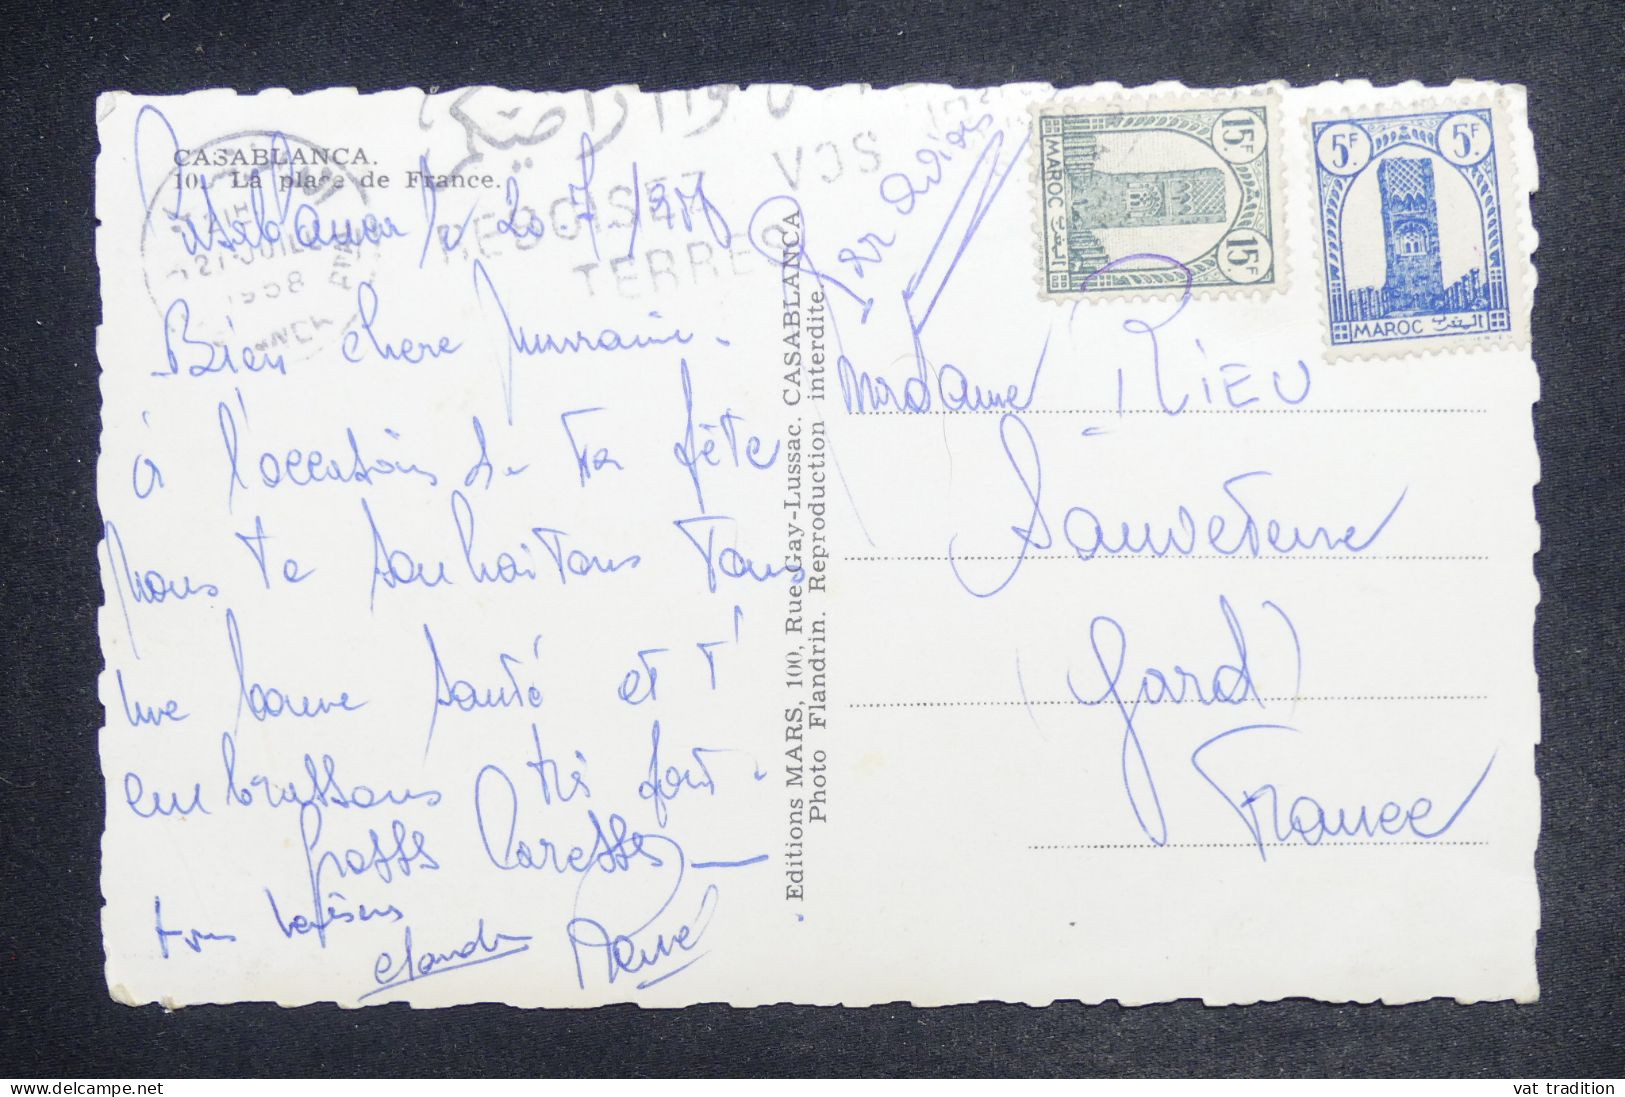 CASABLANCA.
10. La place de France.
Casablanca le 20.7.1958
REBOISEZ VOS
TERRES
21 JUIL
1958
Bien chere Marraine.
à l'occasion de ta fête
nous te souhaitons tous
une bonne santé et t'
embrassons très fort.
Grosses Caresses
bons baisers
Claudie René
Editions MARS, 100, Rue Gay-Lussac. CASABLANCA
Photo Flandrin. Reproduction interdite.
Par avion
15F
15F
MAROC
المغرب
5F
5F
MAROC
المغرب
Madame RIEU
Sauveterre
(Gard)
France
vat tradition
delcampe.net